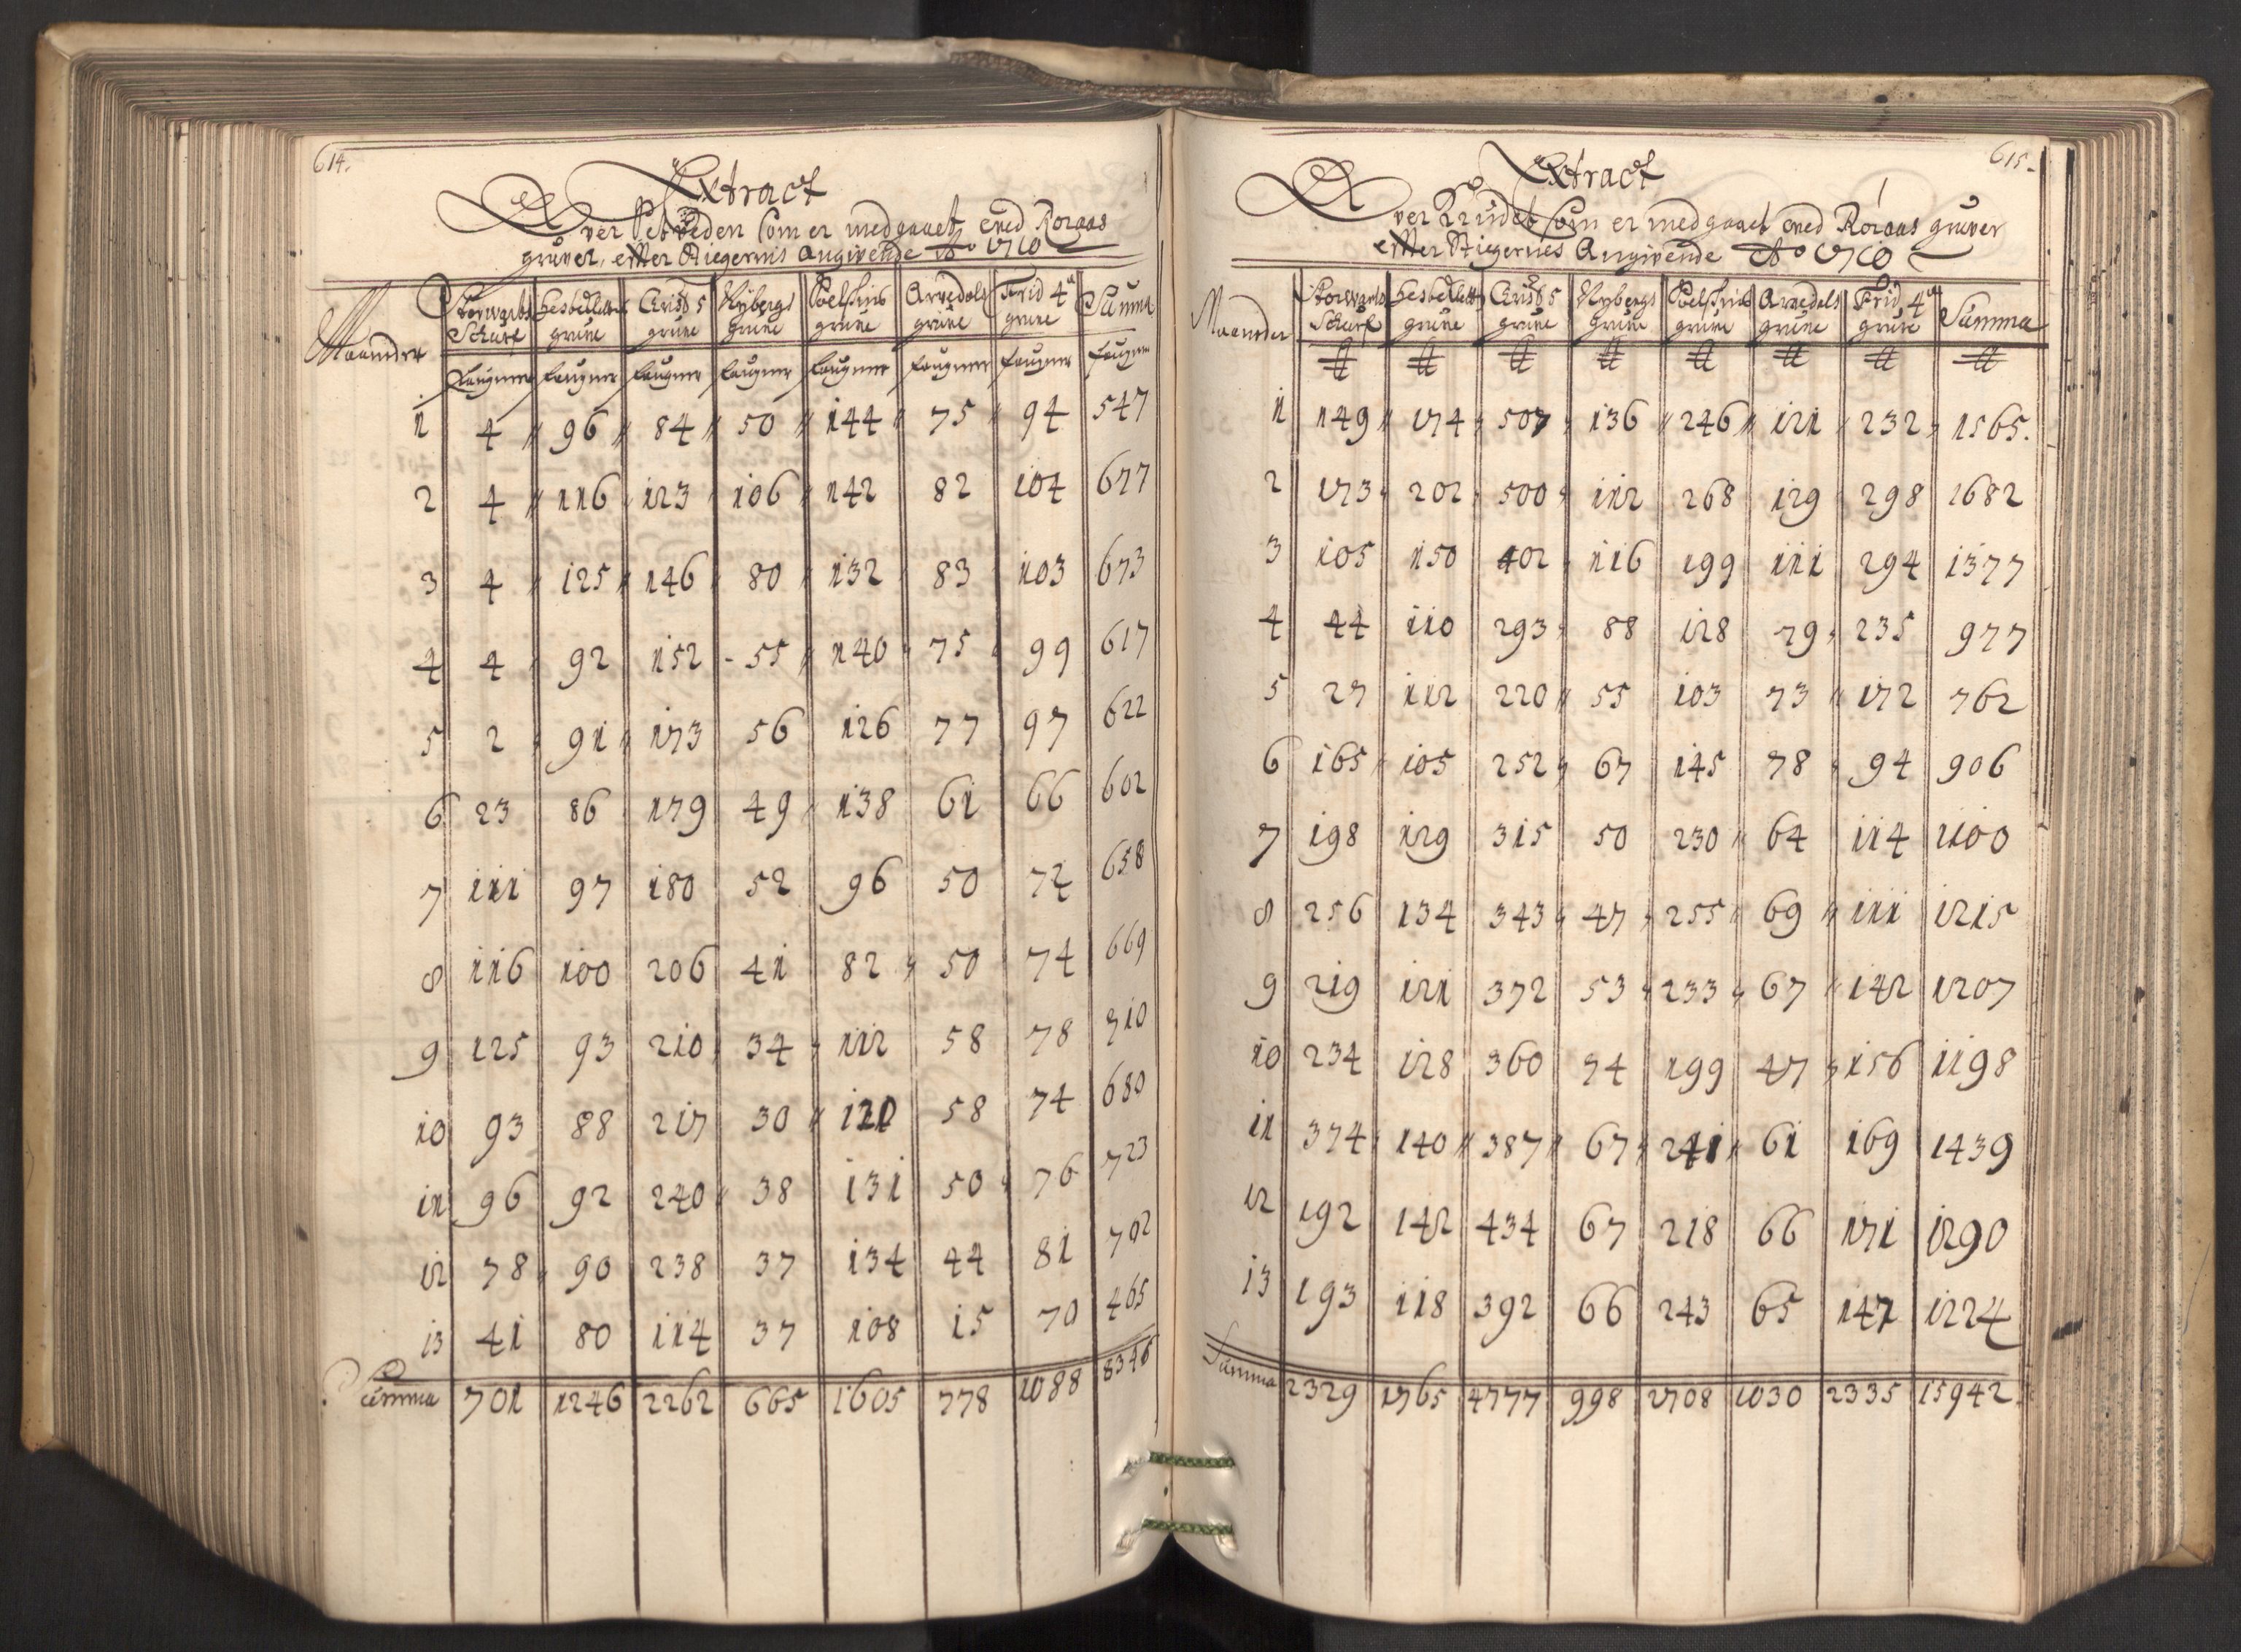 614.
Extract
Over Setveden som er medgaaet ved Röraas
gruver, effter Stiegernis Angivende Ao 1710
Maaneder | Storvarts Schurf | Hestkletten gruve | Chris: 5 gruve | Nybergs gruve | gruve | Arvedals gruve | Frid 4de gruve | Summa
faugner | faugner | faugner | faugner | faugner | faugner | faugner | faugner
1 | 4 | 96 | 84 | 50 | 144 | 75 | 94 | 547
2 | 4 | 116 | 123 | 106 | 142 | 82 | 104 | 677
3 | 4 | 125 | 146 | 80 | 132 | 83 | 103 | 673
4 | 4 | 92 | 152 | 55 | 140 | 75 | 99 | 617
5 | 2 | 91 | 173 | 56 | 126 | 77 | 97 | 622
6 | 23 | 86 | 179 | 49 | 138 | 61 | 66 | 602
7 | 111 | 97 | 180 | 52 | 96 | 50 | 72 | 658
8 | 116 | 100 | 206 | 41 | 82 | 50 | 74 | 669
9 | 125 | 93 | 210 | 34 | 112 | 58 | 78 | 710
10 | 93 | 88 | 217 | 30 | 120 | 58 | 74 | 680
11 | 96 | 92 | 240 | 38 | 131 | 50 | 76 | 723
12 | 78 | 90 | 238 | 37 | 134 | 44 | 81 | 702
13 | 41 | 80 | 114 | 37 | 108 | 15 | 70 | 465
Summa | 701 | 1246 | 2262 | 665 | 1605 | 778 | 1088 | 8345
615.
Extract
Over Krudet som er medgaaet ved Röraas gruver
effter Stigernes Angivende Ao 1710
Maaneder | Storvarts Schurf | Hestkletten gruve | Chris: 5 gruve | Nybergs gruve | gruve | Arvedals gruve | Frid 4de gruve | Summa
℔ | ℔ | ℔ | ℔ | ℔ | ℔ | ℔ | ℔
1 | 149 | 174 | 507 | 136 | 246 | 121 | 232 | 1565.
2 | 173 | 202 | 500 | 112 | 268 | 129 | 298 | 1682
3 | 105 | 150 | 402 | 116 | 199 | 111 | 294 | 1377
4 | 44 | 110 | 293 | 88 | 128 | 79 | 235 | 977
5 | 27 | 112 | 220 | 55 | 103 | 73 | 172 | 762
6 | 165 | 105 | 252 | 67 | 145 | 78 | 94 | 906
7 | 198 | 129 | 315 | 50 | 230 | 64 | 114 | 1100
8 | 256 | 134 | 343 | 47 | 255 | 69 | 111 | 1215
9 | 219 | 121 | 372 | 53 | 233 | 67 | 142 | 1207
10 | 234 | 128 | 360 | 74 | 199 | 47 | 156 | 1198
11 | 374 | 140 | 387 | 67 | 241 | 61 | 169 | 1439
12 | 192 | 142 | 434 | 67 | 218 | 66 | 171 | 1290
13 | 193 | 118 | 392 | 66 | 243 | 65 | 147 | 1224
Summa | 2329 | 1765 | 4777 | 998 | 2708 | 1030 | 2335 | 15942.